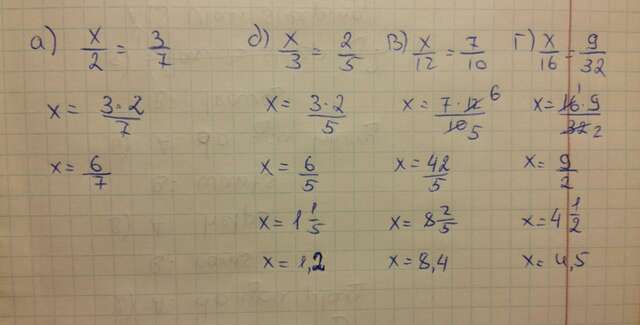 а) x/2 = 3/7
x = 3·2/7
x = 6/7
б) x/3 = 2/5
x = 3·2/5
x = 6/5
x = 1 1/5
x = 1,2
в) x/12 = 7/10
x = 7·12/10 6 5
x = 42/5
x = 8 2/5
x = 8,4
г) x/16 = 9/32
x = 16·9/32 1 2
x = 9/2
x = 4 1/2
x = 4,5